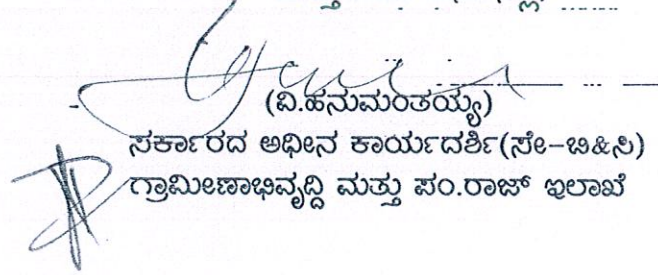 (ವಿ.ಹನುಮಂತಯ್ಯ)
ಸರ್ಕಾರದ ಅಧೀನ ಕಾರ್ಯದರ್ಶಿ(ಸೇ-ಬಿ&ಸಿ)
ಗ್ರಾಮೀಣಾಭಿವೃದ್ಧಿ ಮತ್ತು ಪಂ.ರಾಜ್ ಇಲಾಖೆ